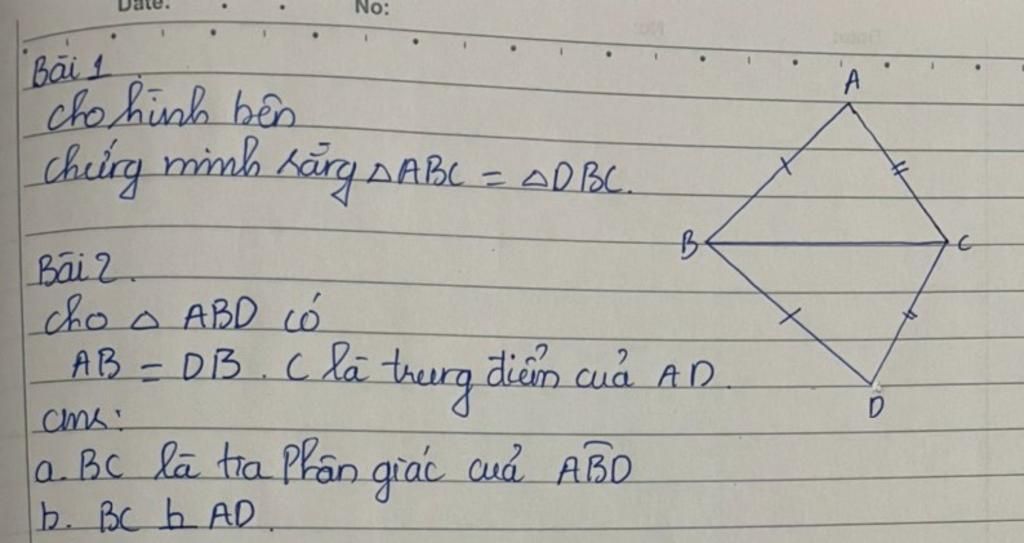 Date: No:
Bài 1
cho hình bên
chứng minh rằng △ABC = △DBC.
A
B
C
D
Bài 2.
cho △ ABD có
AB = DB. C là trung điểm của AD.
cmr:
a. BC là tia Phân giác của ABD
b. BC ⊥ AD.